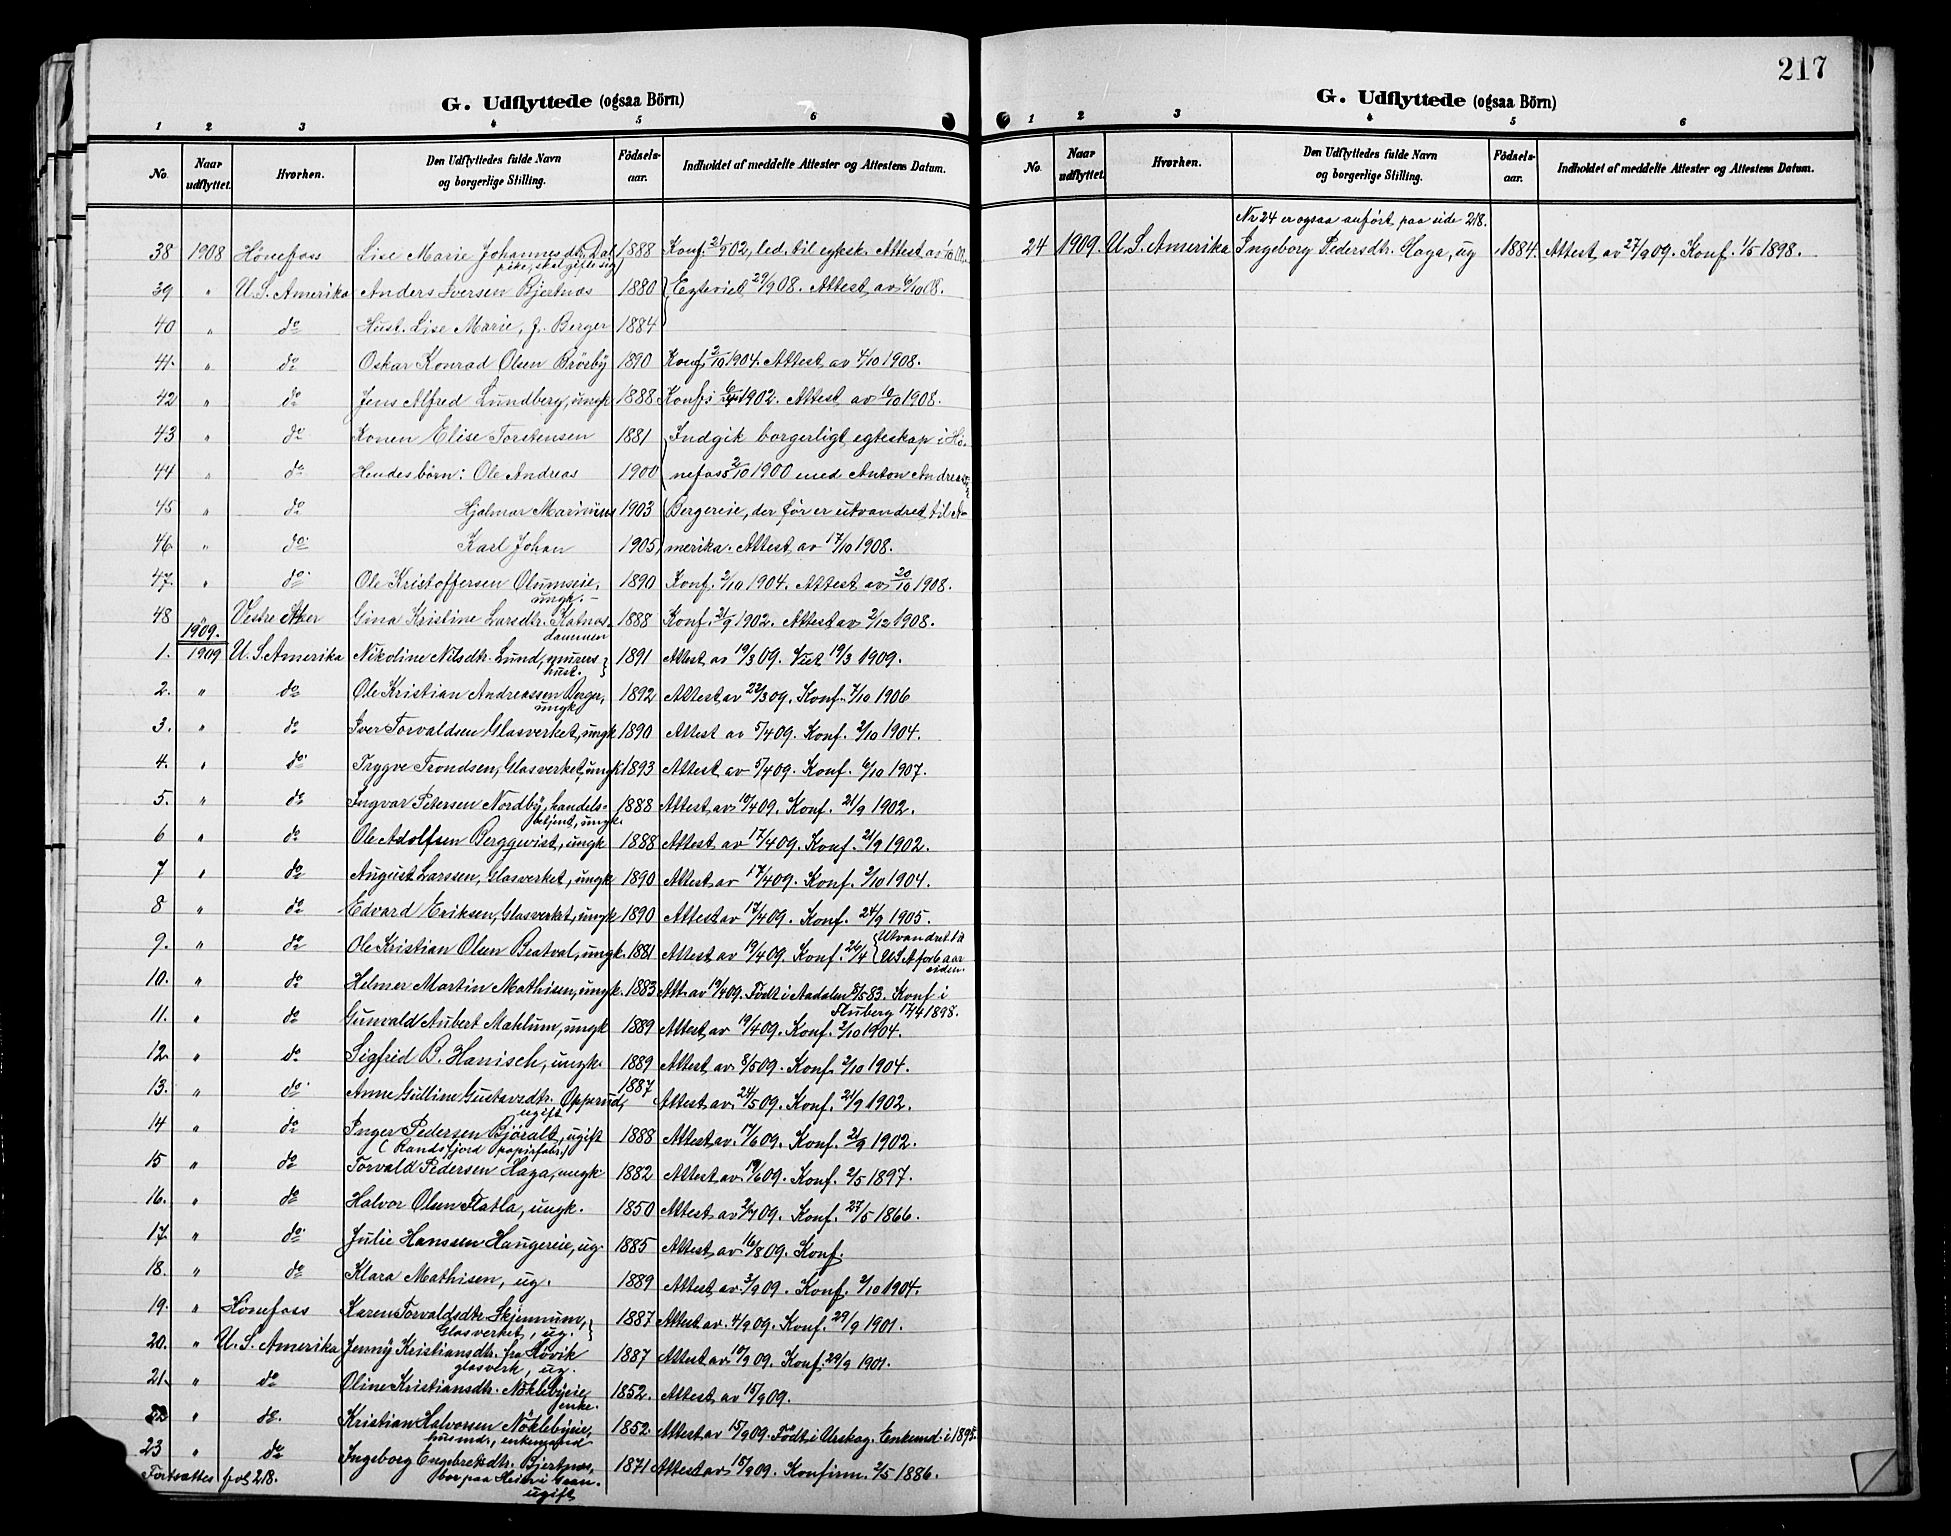 G. Udflyttede (ogsaa Börn)
1 2 3 4 5 6
No. Naar udflyttet. Hvorhen. Den Udflyttedes fulde Navn og borgerlige Stilling. Födsels-aar. Indholdet af meddelte Attester og Attestens Datum.
38 1908 Hönefoss Lise Marie Johannesdtr. Dal 1888 Konf. 21/9 02, led. til egtesk. Attest av
pike, skal gifte sig
39 " U. S. Amerika Anders Iversen Bjertnæs 1880 Egteviet 29/9 08. Attest av 6/10 08.
40 " do Hust. Lise Marie, f. Berger 1884
41. " do Oskar Konrad Olsen Brörby 1890 Konf. 2/10 1904. Attest av 7/10 1908.
42 " do Jens Alfred Lundberg, ungk 1888 Konf. i 1902. Attest av 10/10 1908.
43 " do Konen Elise Torstensen 1881 Indgik borgerligt egteskap i Hö-
44 " do Hendes börn: Ole Andreas 1900 nefoss 2/10 1900 med Anton Andreas
45 " do Hjalmar Marinius 1903 Bergereie, der för er utvandret til A-
46 " do Karl Johan 1905 merika. Attest av 17/10 1908.
47. " do Ole Kristoffersen Olumseie, 1890 Konf. 2/10 1904. Attest av 20/10 1908.
ungk.
48 " Vestre Aker Gina Kristine Larsdtr. Katnos- 1888 Konf. 21/9 1902. Attest av 2/12 1908.
dammen
1909.
1. 1909 U. S. Amerika Nikoline Nilsdtr. Lund, murers 1891 Attest av 19/3 09. Viet 19/3 1909.
hust.
2. " do Ole Kristian Andreassen Berger, 1892 Attest av 22/3 09. Konf. 7/10 1906
ungk
3. " do Iver Torvaldsen Glasverket, ungk 1890 Attest av 5/4 09. Konf. 2/10 1904.
4. " do Trygve Trondsen, Glasverket, ungk 1893 Attest av 5/4 09. Konf. 6/10 1907.
5. " do Ingvar Petersen Nordby, handels- 1888 Attest av 10/4 09. Konf. 21/9 1902.
betjent, ungk.
6 " do Ole Adolfsen Bergqvist, ungk 1888 Attest av 17/4 09. Konf. 21/9 1902.
7 " do August Larssen, Glasverket, ungk 1890 Attest av 17/4 09. Konf. 2/10 1904.
8 " do Edvard Eriksen, Glasverket, ungk 1890 Attest av 17/4 09. Konf. 24/9 1905.
9. " do Ole Kristian Olsen Beatval, ungk. 1881 Attest av 19/4 09. Konf. 26/4 Utvandret til
U S A for 6 aar
siden.
10. " do Helmer Martin Mathisen, ungk. 1883 Att. av 19/4 09. Födt i Aadalen 8/5 83. Konf i
Fluberg 17/4 1898.
11. " do Gunvald Aubert Mahlum, ungk 1889 Attest av 19/4 09. Konf. 2/10 1904.
12. " do Sigfrid B. Hanisch, ungk. 1889 Attest av 8/5 09. Konf. 2/10 1904.
13. " do Anne Gulline Gustavsdtr. Opperud, 1887 Attest av 24/5 09. Konf. 21/9 1902.
ugift
14 " do Inger Pedersen Björalt, ugift 1888 Attest av 17/6 09. Konf. 21/9 1902.
(Randsfjord papirfabr.)
15 " do Torvald Pedersen Haga, ungk 1882 Attest av 19/6 09. Konf. 2/5 1897.
16. " do Halvor Olsen Flatla, ungk. 1850 Attest av 2/7 09. Konf. 27/5 1866.
17. " do Julie Hanssen Haugereie, ug. 1885 Attest av 16/8 09. Konf.
18. " do Klara Mathisen, ug. 1889 Attest av 3/9 09. Konf. 2/10 1904.
19. " Hönefoss Karen Torvaldsdtr. Skjennum, 1887 Attest av. 4/9 09. Konf. 29/9 1901.
Glasverket, ug.
20. " U. S. Amerika Jenny Kristiansdtr. fra Hövik 1887 Attest av 10/9 09. Konf. 29/9 1901.
glasverk, ug.
21. " do Oline Kristiansdtr. Nöklebyeie, 1852. Attest av 15/9 09.
enke.
22 " do. Kristian Halvorsen Nöklebyeie, 1852. Attest av 15/9 09. Födt i Urskog. Enkemd. i 1898.
husmd., enkemand
23 " do Ingeborg Engebretsdtr. Bjertnæs, 1871 Attest av 15/9 09. Konfirm. 2/5 1886.
bor paa Hleier i Gran.
ugift
Fortsættes fol 218.
217
G. Udflyttede (ogsaa Börn)
1 2 3 4 5 6
No. Naar udflyttet. Hvorhen. Den Udflyttedes fulde Navn og borgerlige Stilling. Födsels-aar. Indholdet af meddelte Attester og Attestens Datum.
Nr 24 er ogsaa anfört paa side 218.
24 1909. U. S. Amerika Ingeborg Pedersdtr. Haga, ug 1884. Attest av 27/9 09. Konf. 1/5 1898.